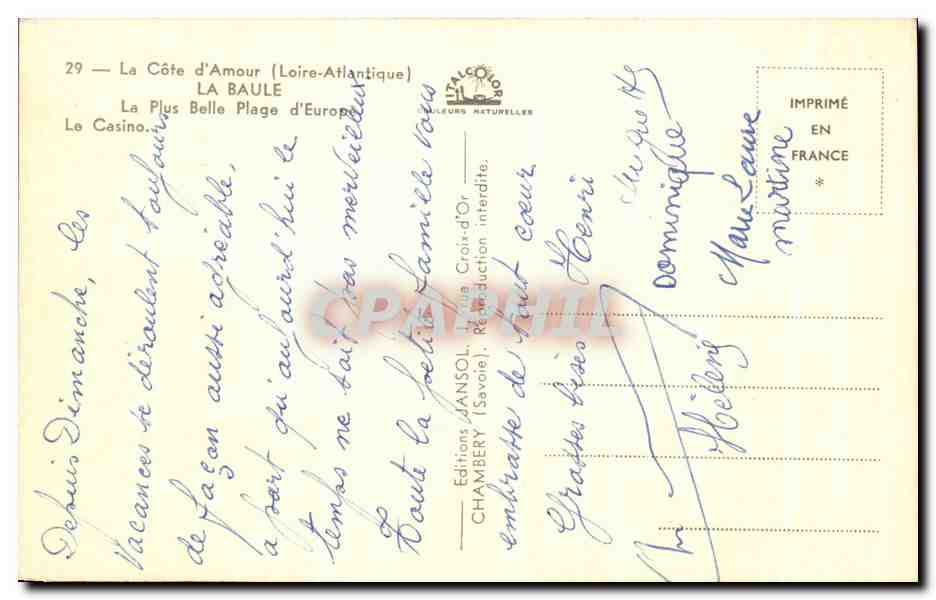 29 — La Côte d'Amour (Loire-Atlantique)
LA BAULE
La Plus Belle Plage d'Europe
Le Casino...
ITALCOLOR
COULEURS NATURELLES
IMPRIMÉ
EN
FRANCE
*
Editions JANSOL, rue Croix-d'Or
CHAMBERY (Savoie). Reproduction interdite.
CPAPHIL
Depuis Dimanche, les
vacances se déroulent toujours
de façon aussi agréable,
a part qu'aujourd'hui le
temps ne soit pas merveilleux.
Toute la petite famille vous
embrasse de tout cœur
Grosses bises Henri
Dominique
Marie Laure
martine
Hélène